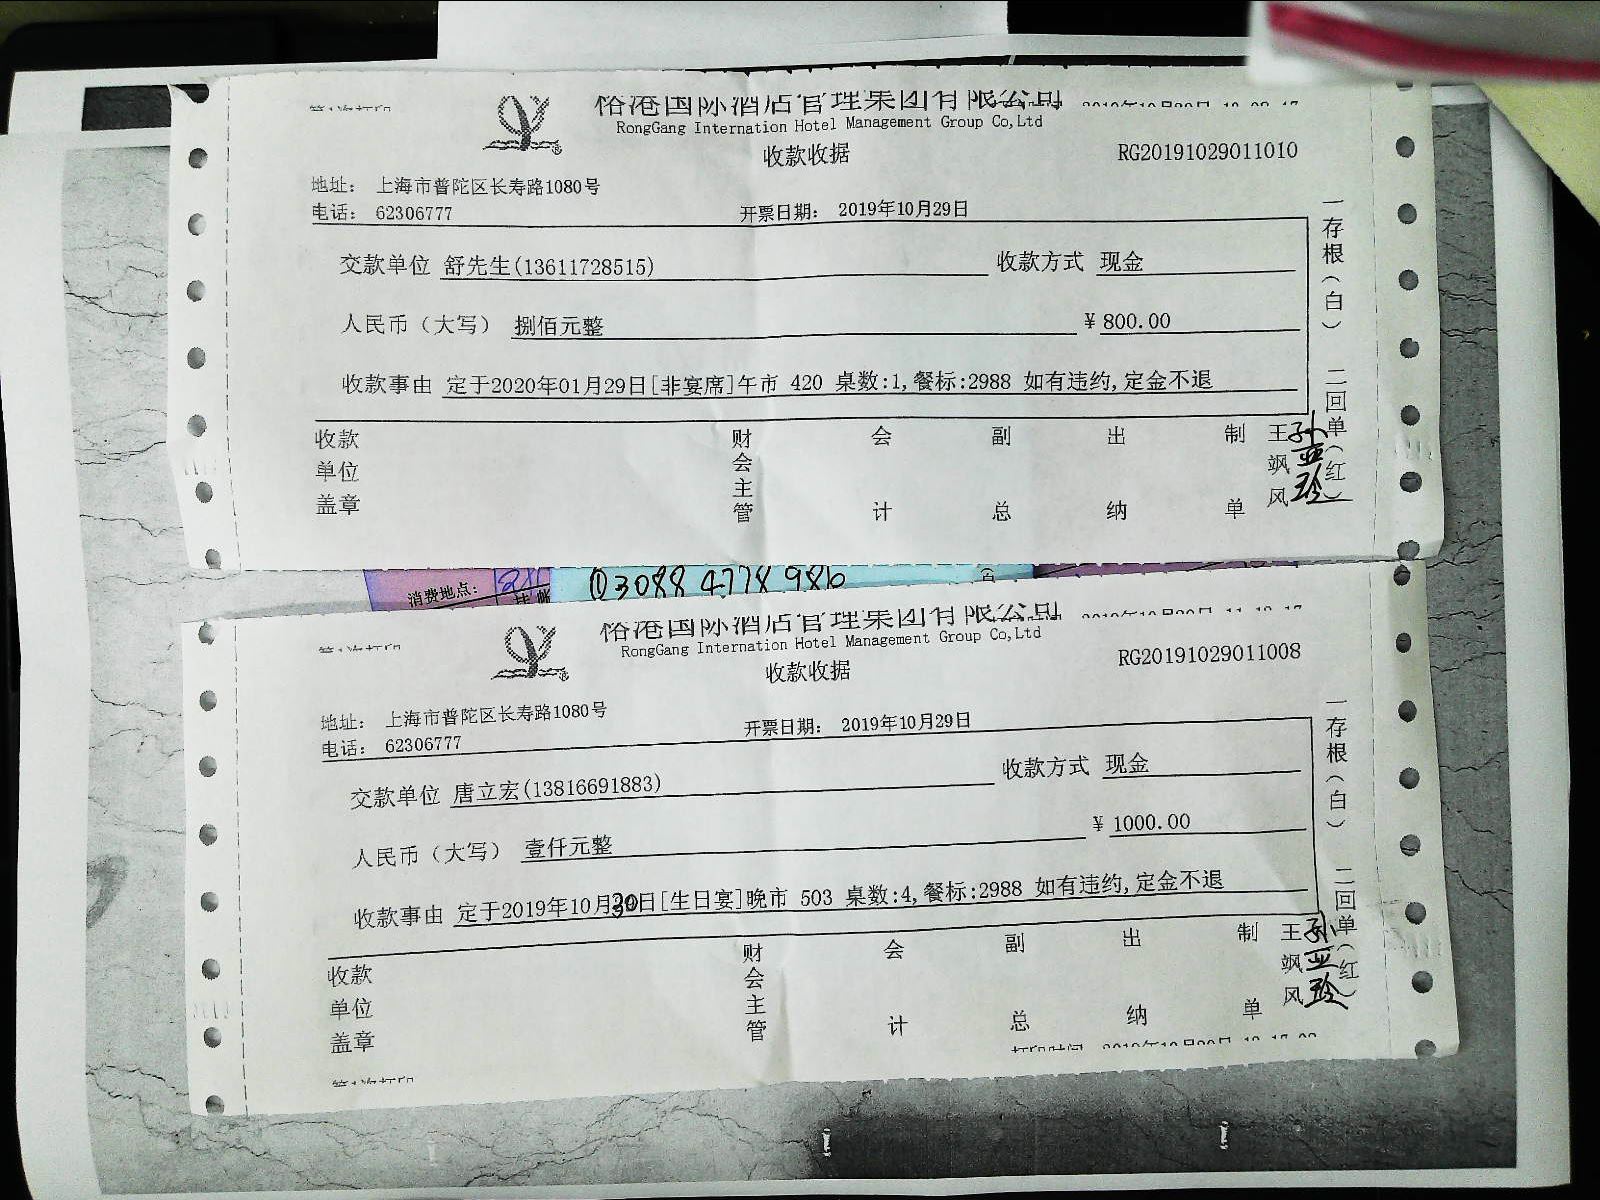 裕港国际酒店管理集团有限公司
RongGang Internation Hotel Management Group Co,Ltd
收款收据
RG20191029011010
地址： 上海市普陀区长寿路1080号
电话： 62306777
开票日期： 2019年10月29日
交款单位 舒先生(13611728515) 收款方式 现金
人民币（大写） 捌佰元整 ¥ 800.00
收款事由 定于2020年01月29日[非宴席]午市 420 桌数:1,餐标:2988 如有违约,定金不退
一存根（白） 二回单（红）
收款单位盖章 财会主管 会计 副总 出纳 制单 王飒风 孙亚玲
消费地点：
03088 4778 986
裕港国际酒店管理集团有限公司
RongGang Internation Hotel Management Group Co,Ltd
收款收据
RG20191029011008
地址： 上海市普陀区长寿路1080号
电话： 62306777
开票日期： 2019年10月29日
交款单位 唐立宏(13816691883) 收款方式 现金
人民币（大写） 壹仟元整 ¥ 1000.00
收款事由 定于2019年10月30日[生日宴]晚市 503 桌数:4,餐标:2988 如有违约,定金不退
一存根（白） 二回单（红）
收款单位盖章 财会主管 会计 副总 出纳 制单 王飒风 孙亚玲